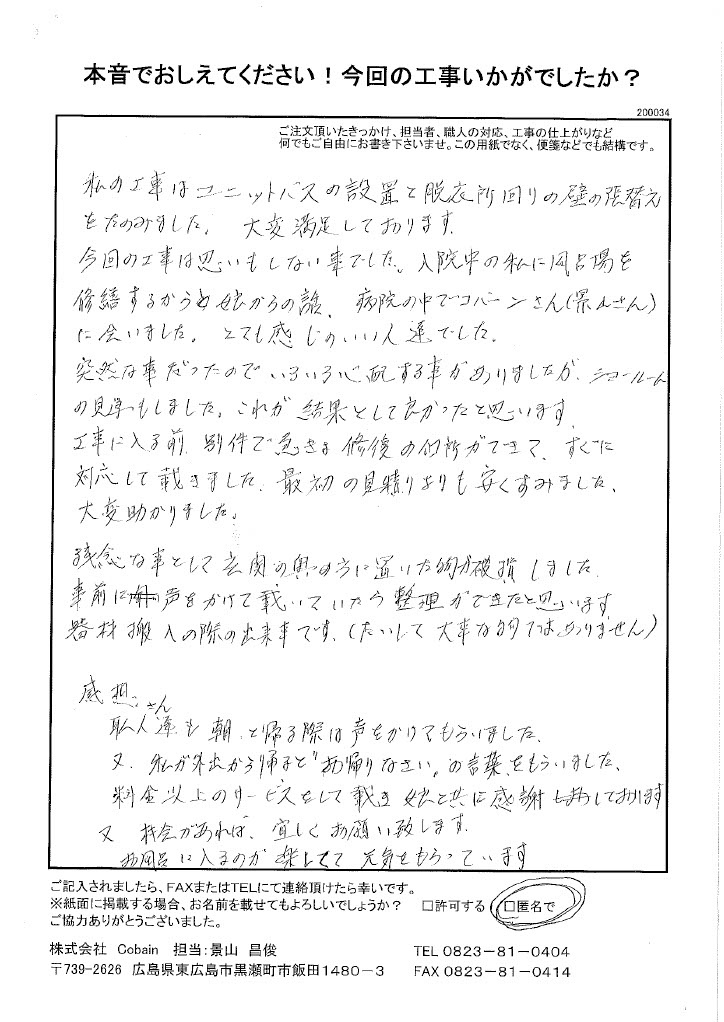 本音でおしえてください！今回の工事いかがでしたか？
200034
ご注文頂いたきっかけ、担当者、職人の対応、工事の仕上がりなど
何でもご自由にお書き下さいませ。この用紙でなく、便箋などでも結構です。
私の工事はユニットバスの設置と脱衣所回りの壁の張替え
をたのみました。大変満足しております。
今回の工事は思いもしない事でした。入院中の私に風呂場を
修繕するからと娘からの話、病院の中でコバーンさん(景山さん)
に会いました。とても感じのいい人達でした。
突然な事だったのでいろいろ心配する事がありましたが、ショールーム
の見学もしました。これが結果として良かったと思います。
工事に入る前、別件で急きょ修復の個所ができて、すぐに
対応して載きました。最初の見積りよりも安くすみました。
大変助かりました。
残念な事として玄関の奥の方に置いた物が破損しました。
事前に声をかけて載いていたら整理ができたと思います。
器材搬入の際の出来事です。(たいして大事な物ではありません)
感想
職人達さんも朝、と帰る際は声をかけてもらいました。
又、私が外出から帰ると"お帰りなさい"の言葉をもらいました。
料金以上のサービスをして載き娘と共に感謝しております
又機会があれば、宜しくお願い致します。
お風呂に入るのが楽しくて元気をもらっています
ご記入されましたら、FAXまたはTELにて連絡頂けたら幸いです。
※紙面に掲載する場合、お名前を載せてもよろしいでしょうか？ □許可する □匿名で
ご協力ありがとうございました。
株式会社 Cobain 担当：景山 昌俊 TEL 0823-81-0404
〒739-2626 広島県東広島市黒瀬町市飯田1480-3 FAX 0823-81-0414